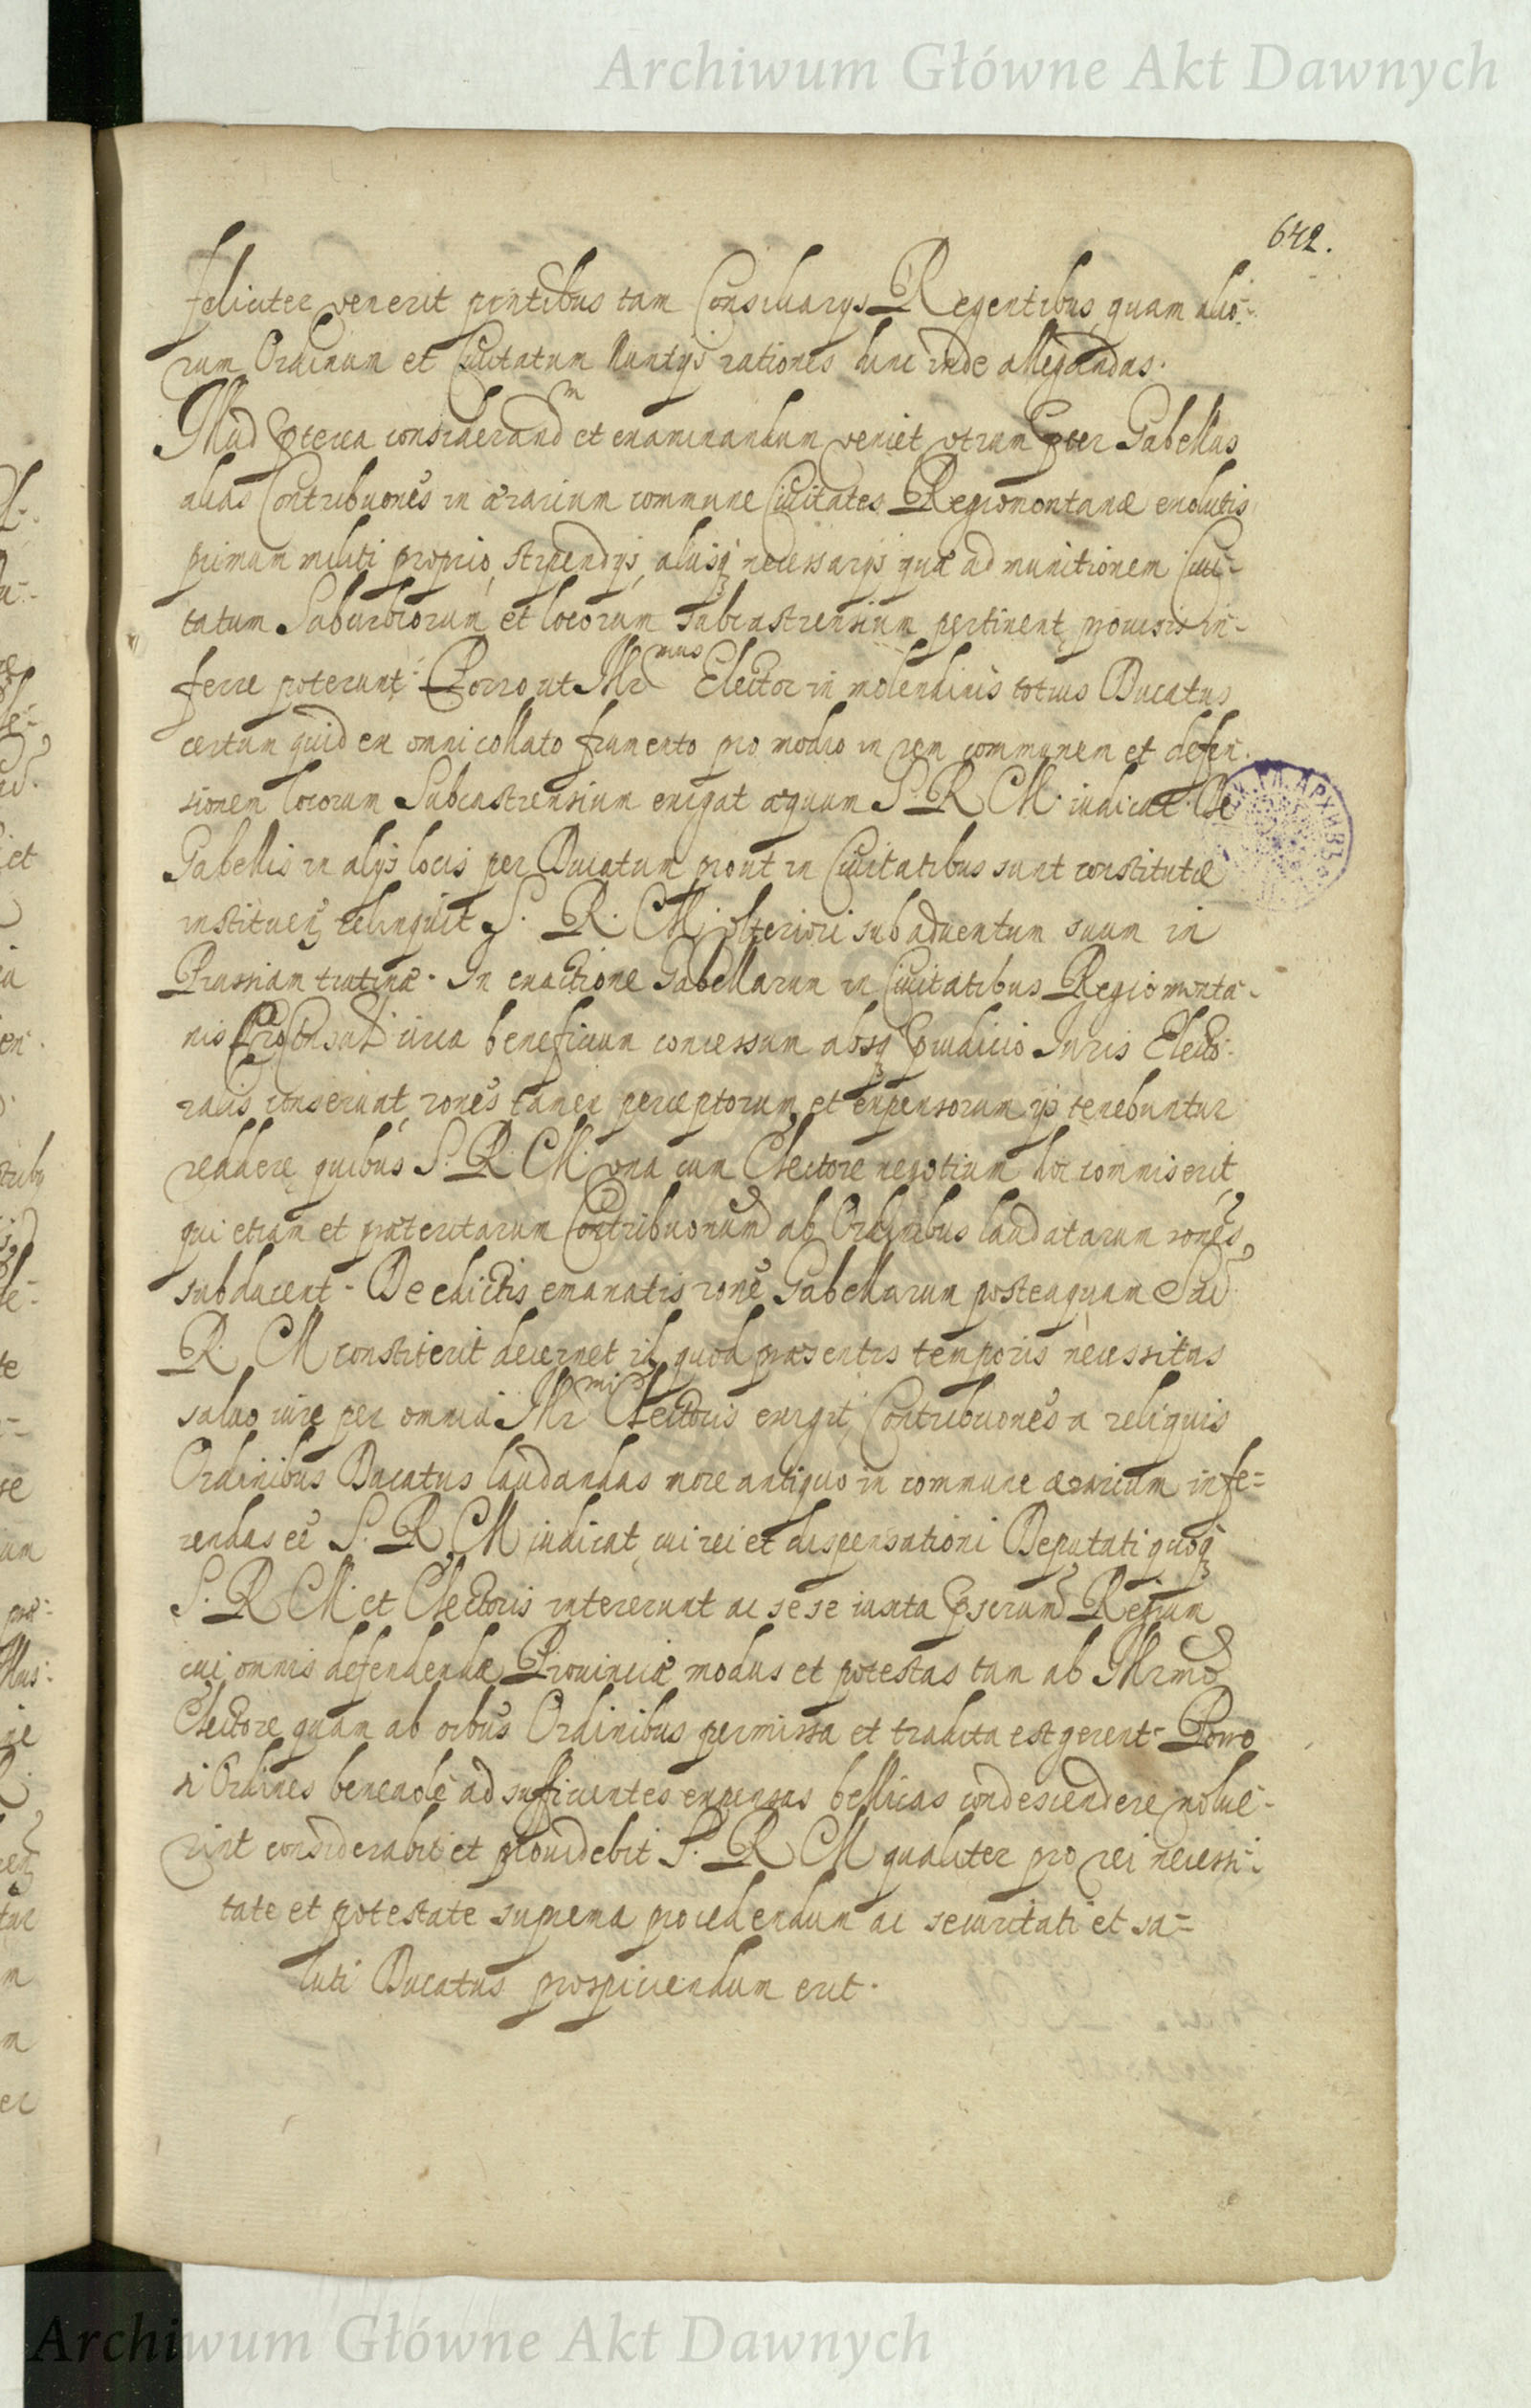 Archiwum Główne Akt Dawnych
642.
feliciter venerit pr̃ntibus tam Consiliarys Regentibus quam alio-
rum Ordinum et Civitatum Nuntys rationes hinc inde allegandas.
Illud pterea considerand͂m et examinandum veniet utrum pter Gabellas
alias Contribuones in ærarium commune Civitates Regiomontanæ exolutis
primum militi proprio, stipendys, alysq necessarys quæ ad munitionem Civi-
tatum Suburbiorum et locorum subcastrensium pertinent provisis in-
ferre poterunt. Porro ut Illr mus Elector in molendinis totius Ducatus
certum quid ex omni collato frumento pro modio in rem communem et defen-
sionem locorum Subcastrensium exigat æquum S. R. M. iudicat. De
Gabellis in alys locis per Ducatum prout in Civitatibus sunt constitutæ
instituen relinquit S. R. M. ulteriori sub adventum suum in
Prussiam tratinæ. In exactione Gabellarum in Civitatibus Regiomonta-
nis circa beneficium concessum absq pjudicio Juris Electo-
ralis rones tamen perceptorum et expensorum ijs tenebuntur
reddere quibus S. R. M. una cum Electore negotium hoc commiserit
qui etiam et præteritarum Contribuonum ab Ordinibus laudatarum rones
subducent. De edictis emanatis rone Gabellarum posteaquam Sac.
R. M constiterit decernet id quod præsentis temporis necessitas
salvo iure per omnia Illr mi Electoris exigit, Contribuones a reliquis
Ordinibus Ducatus laudandas more antiquo in commune ærarium infe-
rendas ee S. R. M iudicat, cui rei et dispensationi Deputati quoq
S. R. M. et Electoris intererunt ac sese iuxta Regium
cui omnis defendendæ Provinciæ modus et potestas tam ab Illrmo
Electore quam ab oibus Ordinibus permissa et tradita est gerent. Porro
si Ordines benevole ad sufficientes expensas bellicas condescendere nolue-
rint considerabit et providebit S. R. M qualiter pro rei necessi-
tate et potestate suprema procedendum ac securitati et sa-
luti Ducatus prospiciendum erit.
Archiwum Główne Akt Dawnych